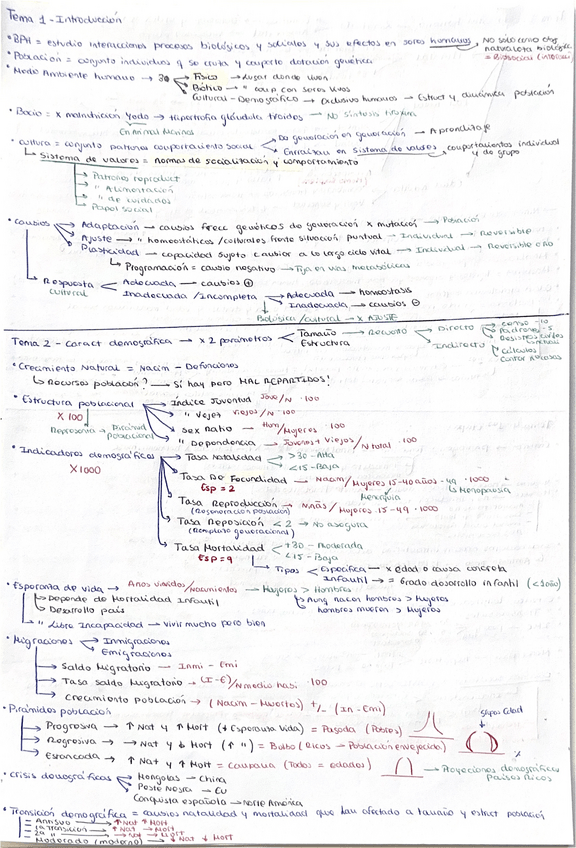 Tema 1 - Introducción
• BPH = estudio interacciones procesos biológicos y sociales y sus efectos en seres humanos → No sólo como otra naturaleza biológica = Biosocial
• Población = conjunto individuos q se cruza y comparte dotación genética
• Medio Ambiente humano → 3
Físico → Lugar donde viven
Biótico → " comp. con seres vivos
Cultural - Demográfico → exclusivo humanos → Estruct y dinámica población
• Bocio = x malnutrición Yodo → Hipertrofia glándula tiroides → No síntesis tiroxina
• Cultura = conjunto patrones comportamiento social
De generación en generación → Aprendizaje
Enraizan en Sistema de valores → comportamientos individual y de grupo
Sistema de valores = normas de socialización y comportamiento
Patrones reproduct
" Alimentación
" de cuidados
Papel social
• Cambios
Adaptación → cambios frecc genéticos de generación x mutación → Población
Ajuste → " homeostáticos / culturales frente situación puntual - Individual → Reversible
Plasticidad → capacidad sujeto cambiar a lo largo ciclo vital → Individual → Reversible o no
Programación = cambio negativo → Fija en vías metabólicas
Respuesta cultural
Adecuada → cambios ⊕
Inadecuada / Incompleta
Adecuada → homeostasis
Inadecuada → cambios ⊖
Biológica / cultural → x AJUSTE
Tema 2 - Caract demográfica → x 2 parámetros
Tamaño → Recuento
Directo
Censo - 10
Padrones - 5
Indirecto
Cálculos
Estructura
• Crecimiento Natural = Nacim - Defunciones
Recursos población? → Sí hay pero MAL REPARTIDOS!
• Estructura poblacional
X 100
Representa → Pirámide poblacional
Índice Juventud Jove/N · 100
" Vejez Viejos/N · 100
Sex Ratio → Hom/Mujeres · 100
" Dependencia → Jóvenes + Viejos/N total · 100
• Indicadores demográficos
X 1000
Tasa Natalidad
>30 - Alta
<15 - Baja
Tasa De Fecundidad → Nacim/Mujeres 15-40 años - 49 · 1000
Esp = 2
Menarquia
Menopausia
Tasa Reproducción → Niñas/Mujeres 15-49 · 1000
(Regeneración población)
Tasa Reposición < 2 → No asegura
(Reemplazo generacional)
Tasa Mortalidad
+30 - Moderada
<15 - Baja
Esp = 9
Tipos
Específica → x edad o causa concreta
Infantil → = Grado desarrollo infantil (<1año)
• Esperanza de vida → Años vividos/Nacimientos → Mujeres > Hombres
Depende de Mortalidad Infantil
Aunq nacen hombres > Mujeres
Desarrollo país
hombres mueren > Mujeres
" Libre Incapacidad → Vivir mucho pero bien
• Migraciones
Inmigraciones
Emigraciones
Saldo Migratorio → Inmi - Emi
Tasa saldo Migratorio → (I-E)/N medio · 100
Crecimiento población → (Nacim - Muertos) +/- (In - Emi)
• Pirámides población
Progresiva → ↑ Nat y ↑ Mort (↓ Esperanza Vida) = Pagoda (Pobres)
Regresiva → → Nat y ↓ Mort (↑ ") = Bulbo (Ricos → Población envejecida)
Estancada → ↑ Nat y ↑ Mort = Campana (Todos = edades) → Proyecciones demográficas Países Ricos
• Crisis demográficas
Mongolas → China
Peste Negra → Eu
Conquista española → Norte América
• Transición demográfica = cambios natalidad y mortalidad que han afectado a tamaño y estruct población
Antiguo → ↑ Nat ↑ Mort
1a Transición → ↑ Nat → Mort
2a " → → Nat → Mort
Moderado (moderno) → ↓ Nat ↓ Mort